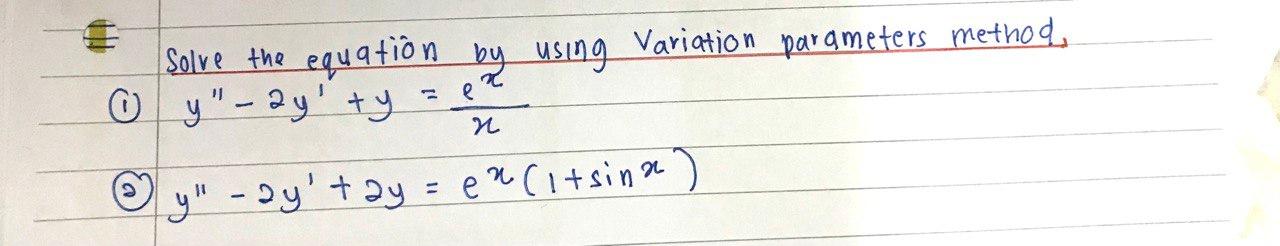 Solve the equation by using Variation parameters method.
① y'' - 2y' + y = e^x / x
② y'' - 2y' + 2y = e^x (1 + sin x)